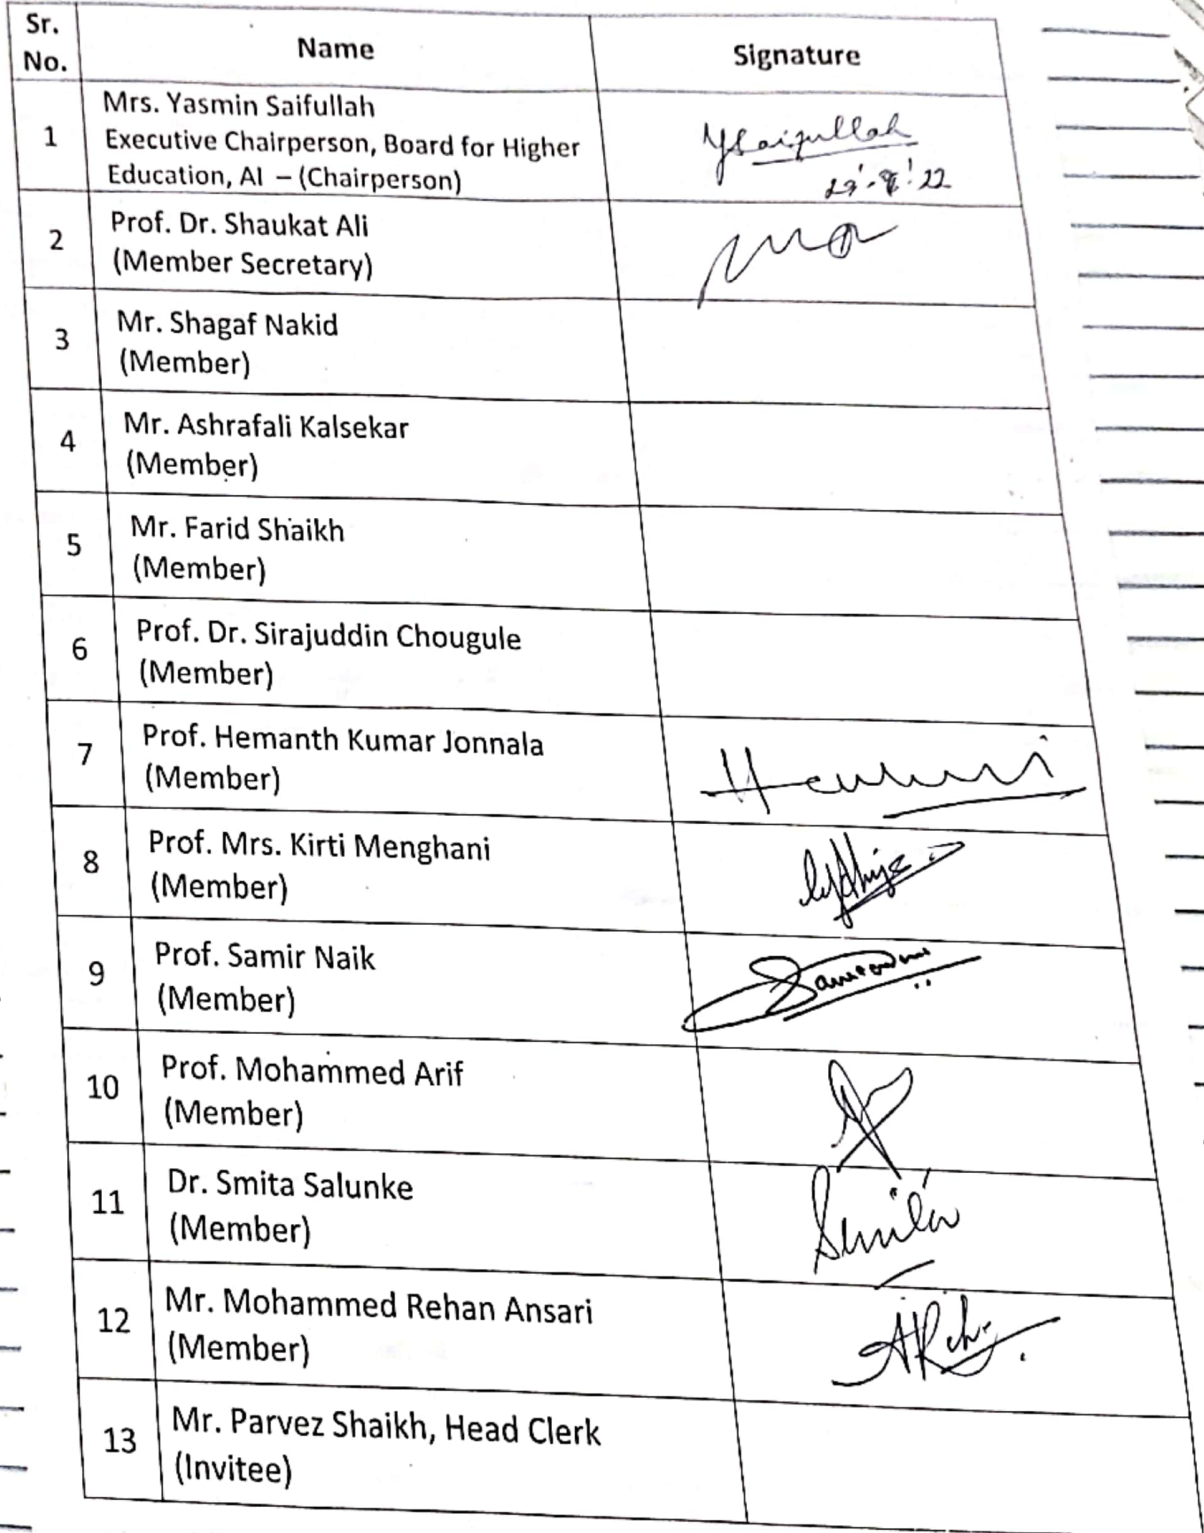 Sr.
No.
Name
Signature
1
Mrs. Yasmin Saifullah
Executive Chairperson, Board for Higher
Education, AI – (Chairperson)
YSaifullah
2
Prof. Dr. Shaukat Ali
(Member Secretary)
3
Mr. Shagaf Nakid
(Member)
4
Mr. Ashrafali Kalsekar
(Member)
5
Mr. Farid Shaikh
(Member)
6
Prof. Dr. Sirajuddin Chougule
(Member)
7
Prof. Hemanth Kumar Jonnala
(Member)
8
Prof. Mrs. Kirti Menghani
(Member)
9
Prof. Samir Naik
(Member)
10
Prof. Mohammed Arif
(Member)
11
Dr. Smita Salunke
(Member)
Smita
12
Mr. Mohammed Rehan Ansari
(Member)
13
Mr. Parvez Shaikh, Head Clerk
(Invitee)